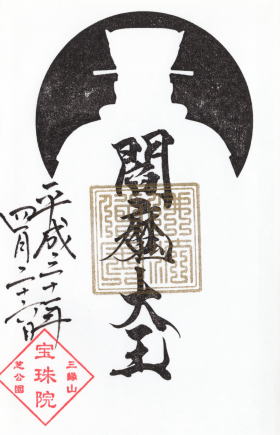 閻魔大王
平成三十一年
四月二十六日
三縁山
宝珠院
芝公園